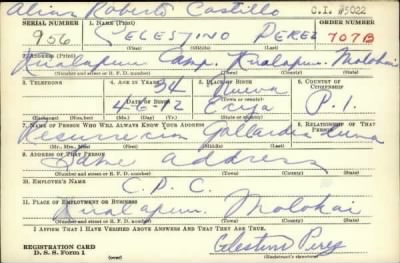 Alias Roberto Castillo C.I. #5022
SERIAL NUMBER 1. NAME (Print) ORDER NUMBER
956 CELESTINO PEREZ 707B
(First) (Middle) (Last)
2. ADDRESS (Print)
Kualapuu Camp. Kualapuu. Molokai
(Number and street or R. F. D. number) (Town) (County) (State)
3. TELEPHONE 4. AGE IN YEARS 5. PLACE OF BIRTH 6. COUNTRY OF CITIZENSHIP
34 Nueva
DATE OF BIRTH (Town or county)
4-6-12 Ecija P.I.
(Mo.) (Day) (Yr.) (State or country)
7. NAME OF PERSON WHO WILL ALWAYS KNOW YOUR ADDRESS 8. RELATIONSHIP OF THAT PERSON
(Mr., Mrs., Miss) (First) (Middle) (Last)
9. ADDRESS OF THAT PERSON
Same address
(Number and street or R. F. D. number) (Town) (County) (State)
10. EMPLOYER'S NAME
C.P.C.
11. PLACE OF EMPLOYMENT OR BUSINESS
Kualapuu. Molokai
(Number and street or R. F. D. number) (Town) (County) (State)
I AFFIRM THAT I HAVE VERIFIED ABOVE ANSWERS AND THAT THEY ARE TRUE.
REGISTRATION CARD
D. S. S. Form 1 Celestino Perez
(Registrant's signature)